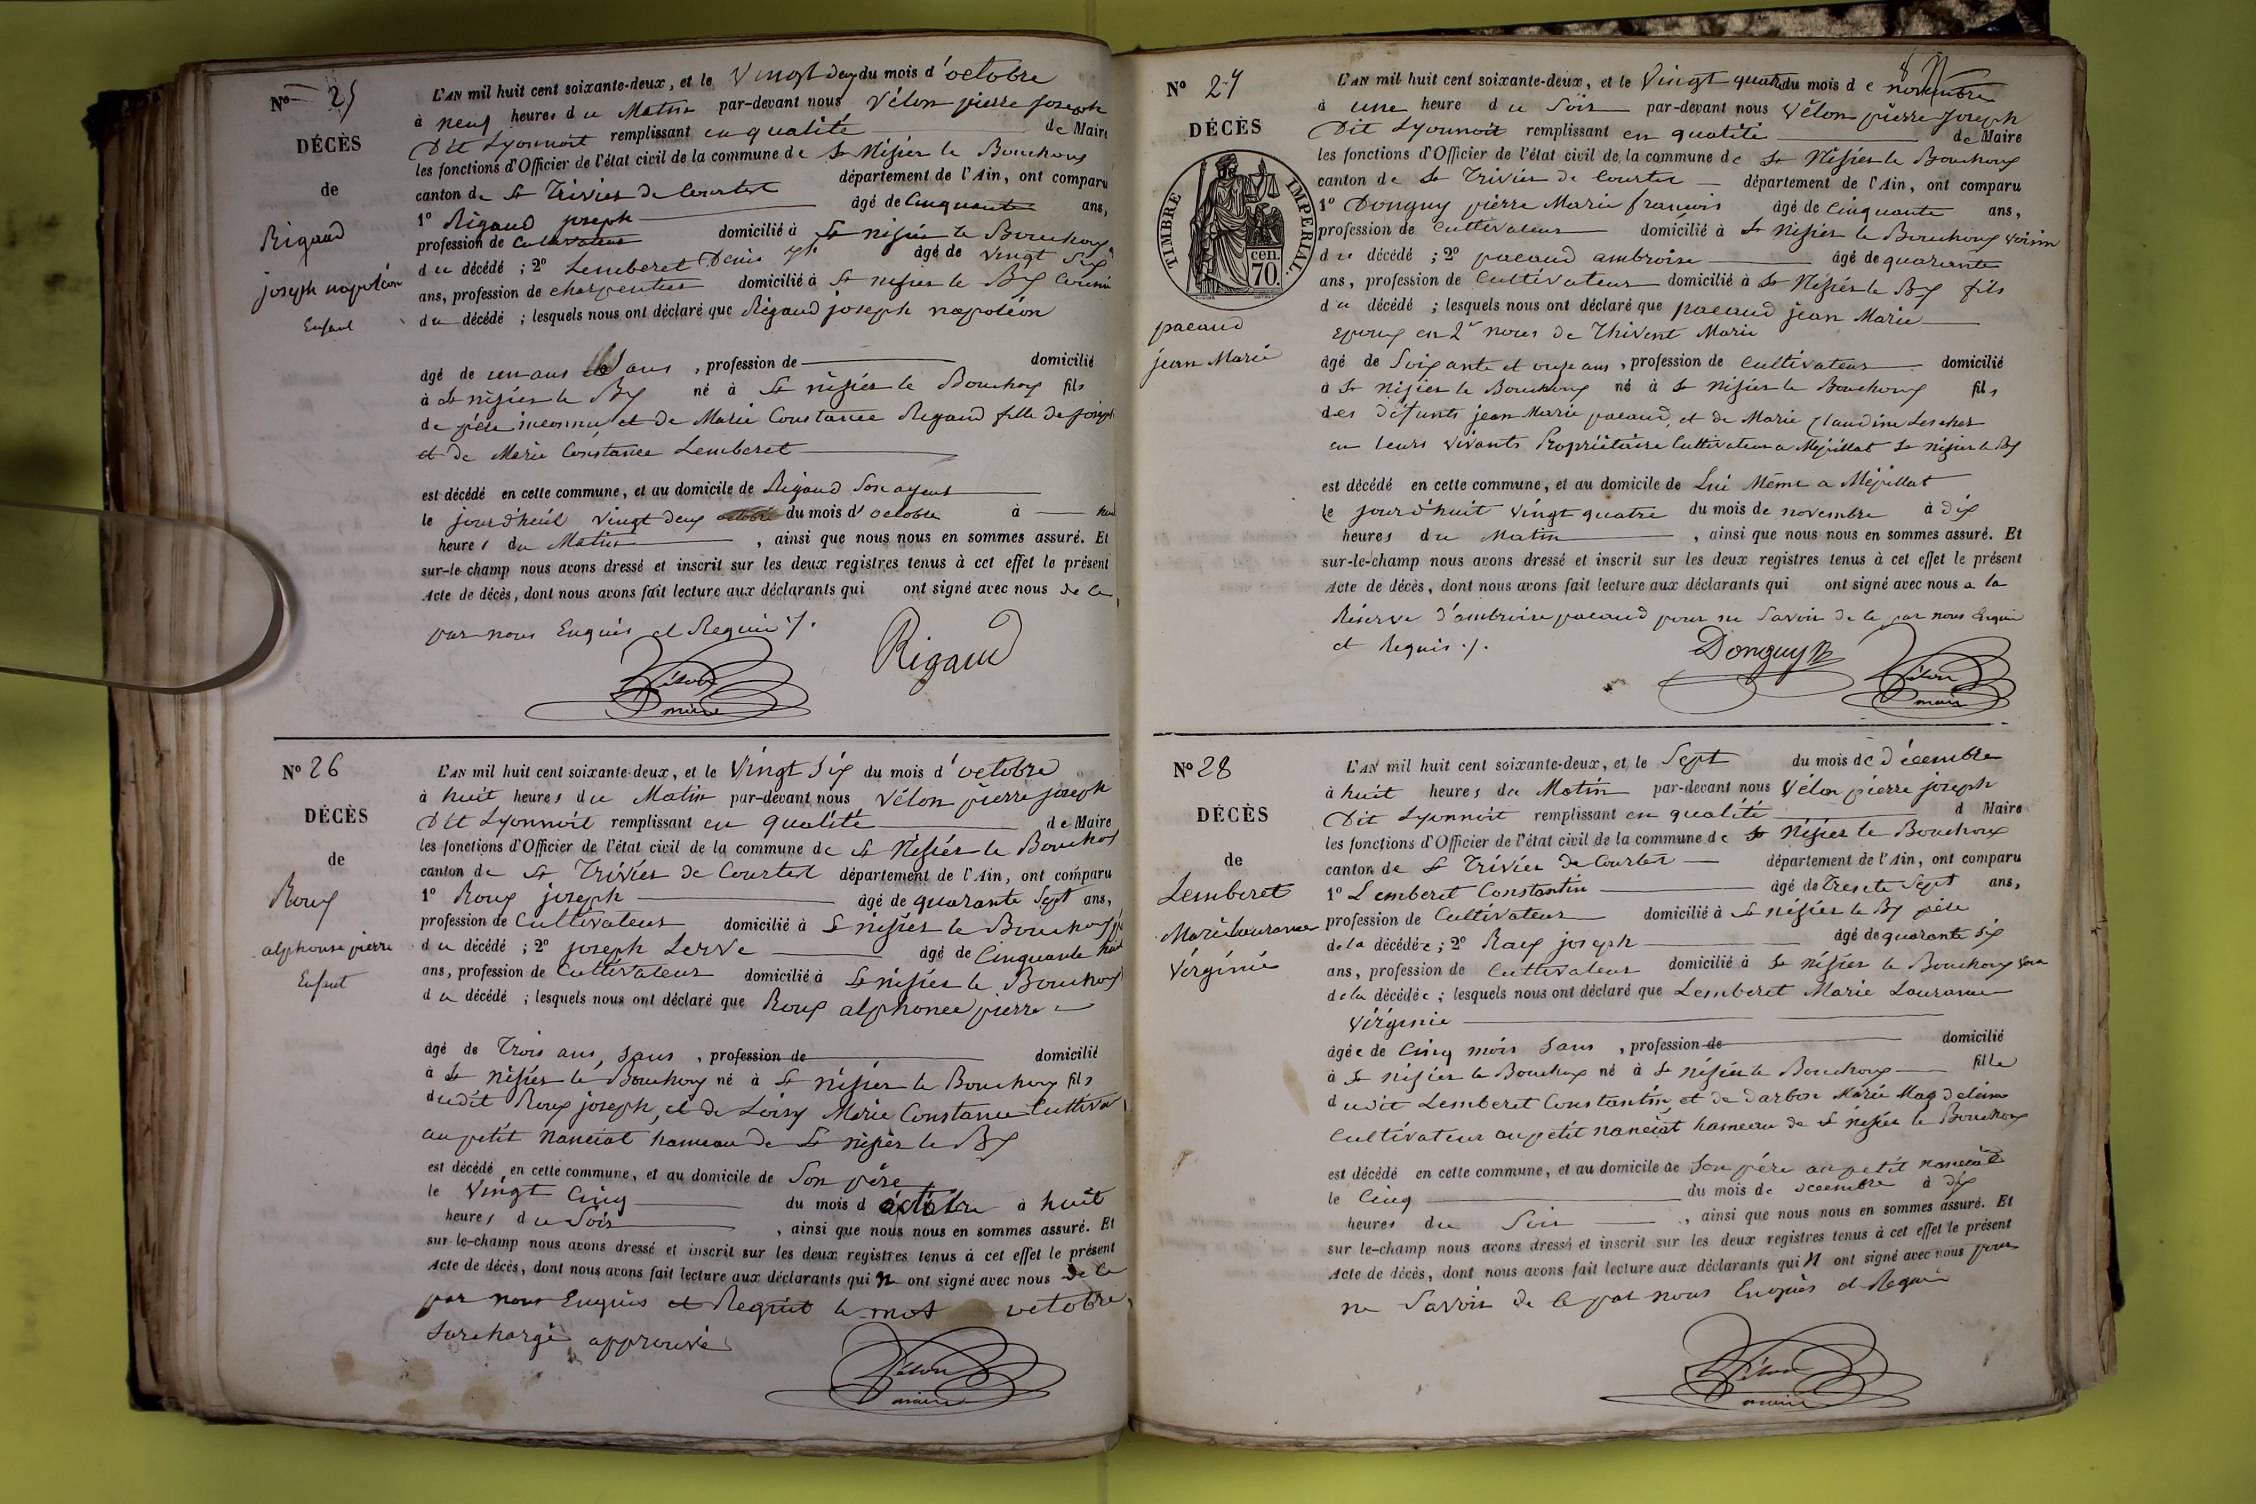 N° 25
DÉCÈS
de
Rigaud
joseph napoléon
Enfant
L'AN mil huit cent soixante-deux, et le Vingt deux du mois d'octobre
à neuf heures du Matin par-devant nous Vélon pierre joseph
Dit Lyonnoit remplissant en qualité de Maire
les fonctions d'Officier de l'état civil de la commune de St Nisier le Bouchoux
canton de St Trivier de Courtest département de l'Ain, ont comparu
1° Rigaud joseph âgé de Cinquante ans,
profession de Cultivateur domicilié à St nisier le Bouchoux
du décédé ; 2° Lemberet Denis âgé de vingt six
ans, profession de charpentier domicilié à St nisier le Bx Cousin
du décédé ; lesquels nous ont déclaré que Rigaud joseph napoléon
âgé de un ans Sans , profession de domicilié
à St nisier le Bx né à St nisier le Bouchoux fils
de père inconnu et de Marie Constance Rigaud fille de joseph
et de Marie Constance Lemberet
est décédé en cette commune, et au domicile de Rigaud Son ayeul
le jourd'heui vingt deux du mois d'octobre à
heures du Matin , ainsi que nous nous en sommes assuré. Et
sur-le-champ nous avons dressé et inscrit sur les deux registres tenus à cet effet le présent
Acte de décès, dont nous avons fait lecture aux déclarants qui ont signé avec nous de ce
par nous Enquis et Requis ./.
Rigaud
Vélon
maire
N° 26
DÉCÈS
de
Roux
alphonse pierre
Enfant
L'AN mil huit cent soixante-deux, et le Vingt Six du mois d'octobre
à huit heures du Matin par-devant nous Vélon pierre joseph
Dit Lyonnoit remplissant en qualité de Maire
les fonctions d'Officier de l'état civil de la commune de St Nisier le Bouchoux
canton de St Trivier de Courtest département de l'Ain, ont comparu
1° Roux joseph âgé de quarante Sept ans,
profession de Cultivateur domicilié à St nisier le Bouchoux
du décédé ; 2° joseph Lerve âgé de Cinquante huit
ans, profession de Cultivateur domicilié à St nisier le Bouchoux
du décédé ; lesquels nous ont déclaré que Roux alphonce pierre
âgé de Trois ans, Sans , profession de domicilié
à St nisier le Bouchoux né à St nisier le Bouchoux fils
dudit Roux joseph, et de Loisy Marie Constance Cultiva
au petit nanciat hameau de St nisier le Bx
est décédé en cette commune, et au domicile de Son père
le vingt Cinq du mois d octobre à huit
heures du Soir , ainsi que nous nous en sommes assuré. Et
sur-le-champ nous avons dressé et inscrit sur les deux registres tenus à cet effet le présent
Acte de décès, dont nous avons fait lecture aux déclarants qui n ont signé avec nous de ce
par nous Enquis et Requis le mot octobre
Surchargé approuvé
Vélon
maire
N° 27
DÉCÈS
TIMBRE IMPERIAL.
cen.
70.
pacaud
jean Marie
L'AN mil huit cent soixante-deux, et le Vingt quatre du mois de novembre
à une heure du Soir par-devant nous Vélon pierre Joseph
Dit Lyonnoit remplissant en qualité de Maire
les fonctions d'Officier de l'état civil de la commune de St Nisier le Bouchoux
canton de St Trivier de Courtes département de l'Ain, ont comparu
1° Donguy pierre Marie francois âgé de Cinquante ans,
profession de Cultivateur domicilié à St Nisier le Bouchoux voisin
du décédé ; 2° pacaud ambroise âgé de quarante
ans, profession de Cultivateur domicilié à St Nisier le Bx fils
du décédé ; lesquels nous ont déclaré que pacaud jean Marie
Epoux en 2e noces de Thivent Marie
âgé de Soixante et onze ans , profession de Cultivateur domicilié
à St Nisier le Bouchoux né à St Nisier le Bouchoux fils
des défunts jean Marie pacaud, et de Marie Claudine Lescher
en leurs vivants Propriétaire Cultivateur a Mépillat St Nisier le Bx
est décédé en cette commune, et au domicile de Lui Même a Mépillat
le jourd'huit vingt quatre du mois de novembre à Dix
heures du Matin , ainsi que nous nous en sommes assuré. Et
sur-le-champ nous avons dressé et inscrit sur les deux registres tenus à cet effet le présent
Acte de décès, dont nous avons fait lecture aux déclarants qui ont signé avec nous a la
Réserve d'ambroise pacaud pour ne Savoir de ce par nous Enquis
et Requis ./.
Donguy
Vélon
maire
N° 28
DÉCÈS
de
Lemberet
Marie Laurance
Virginie
L'AN mil huit cent soixante-deux, et le Sept du mois de décembre
à huit heures du Matin par-devant nous Vélon pierre joseph
Dit Lyonnoit remplissant en qualité d Maire
les fonctions d'Officier de l'état civil de la commune de St Nisier le Bouchoux
canton de St Trivier de Courtes département de l'Ain, ont comparu
1° Lemberet Constantin âgé de Trente Sept ans,
profession de Cultivateur domicilié à St nisier le Bx père
de la décédée ; 2° Roux joseph âgé de quarante six
ans, profession de Cultivateur domicilié à St nisier le Bouchoux
de la décédée ; lesquels nous ont déclaré que Lemberet Marie Laurance
Virginie
âgée de Cinq mois Sans , profession de domicilié
à St nisier le Bouchoux né à St nisier le Bouchoux fille
dudit Lemberet Constantin, et de Darbon Marie Magdelaine
Cultivateur au petit nanciat hameau de St nisier le Bouchoux
est décédé en cette commune, et au domicile de Son père au petit nanciat
le Cinq du mois de décembre à dix
heures du Soir , ainsi que nous nous en sommes assuré. Et
sur le-champ nous avons dressé et inscrit sur les deux registres tenus à cet effet le présent
Acte de décès, dont nous avons fait lecture aux déclarants qui N ont signé avec nous pour
ne Savoir de ce par nous Enquis et Requis
Vélon
maire